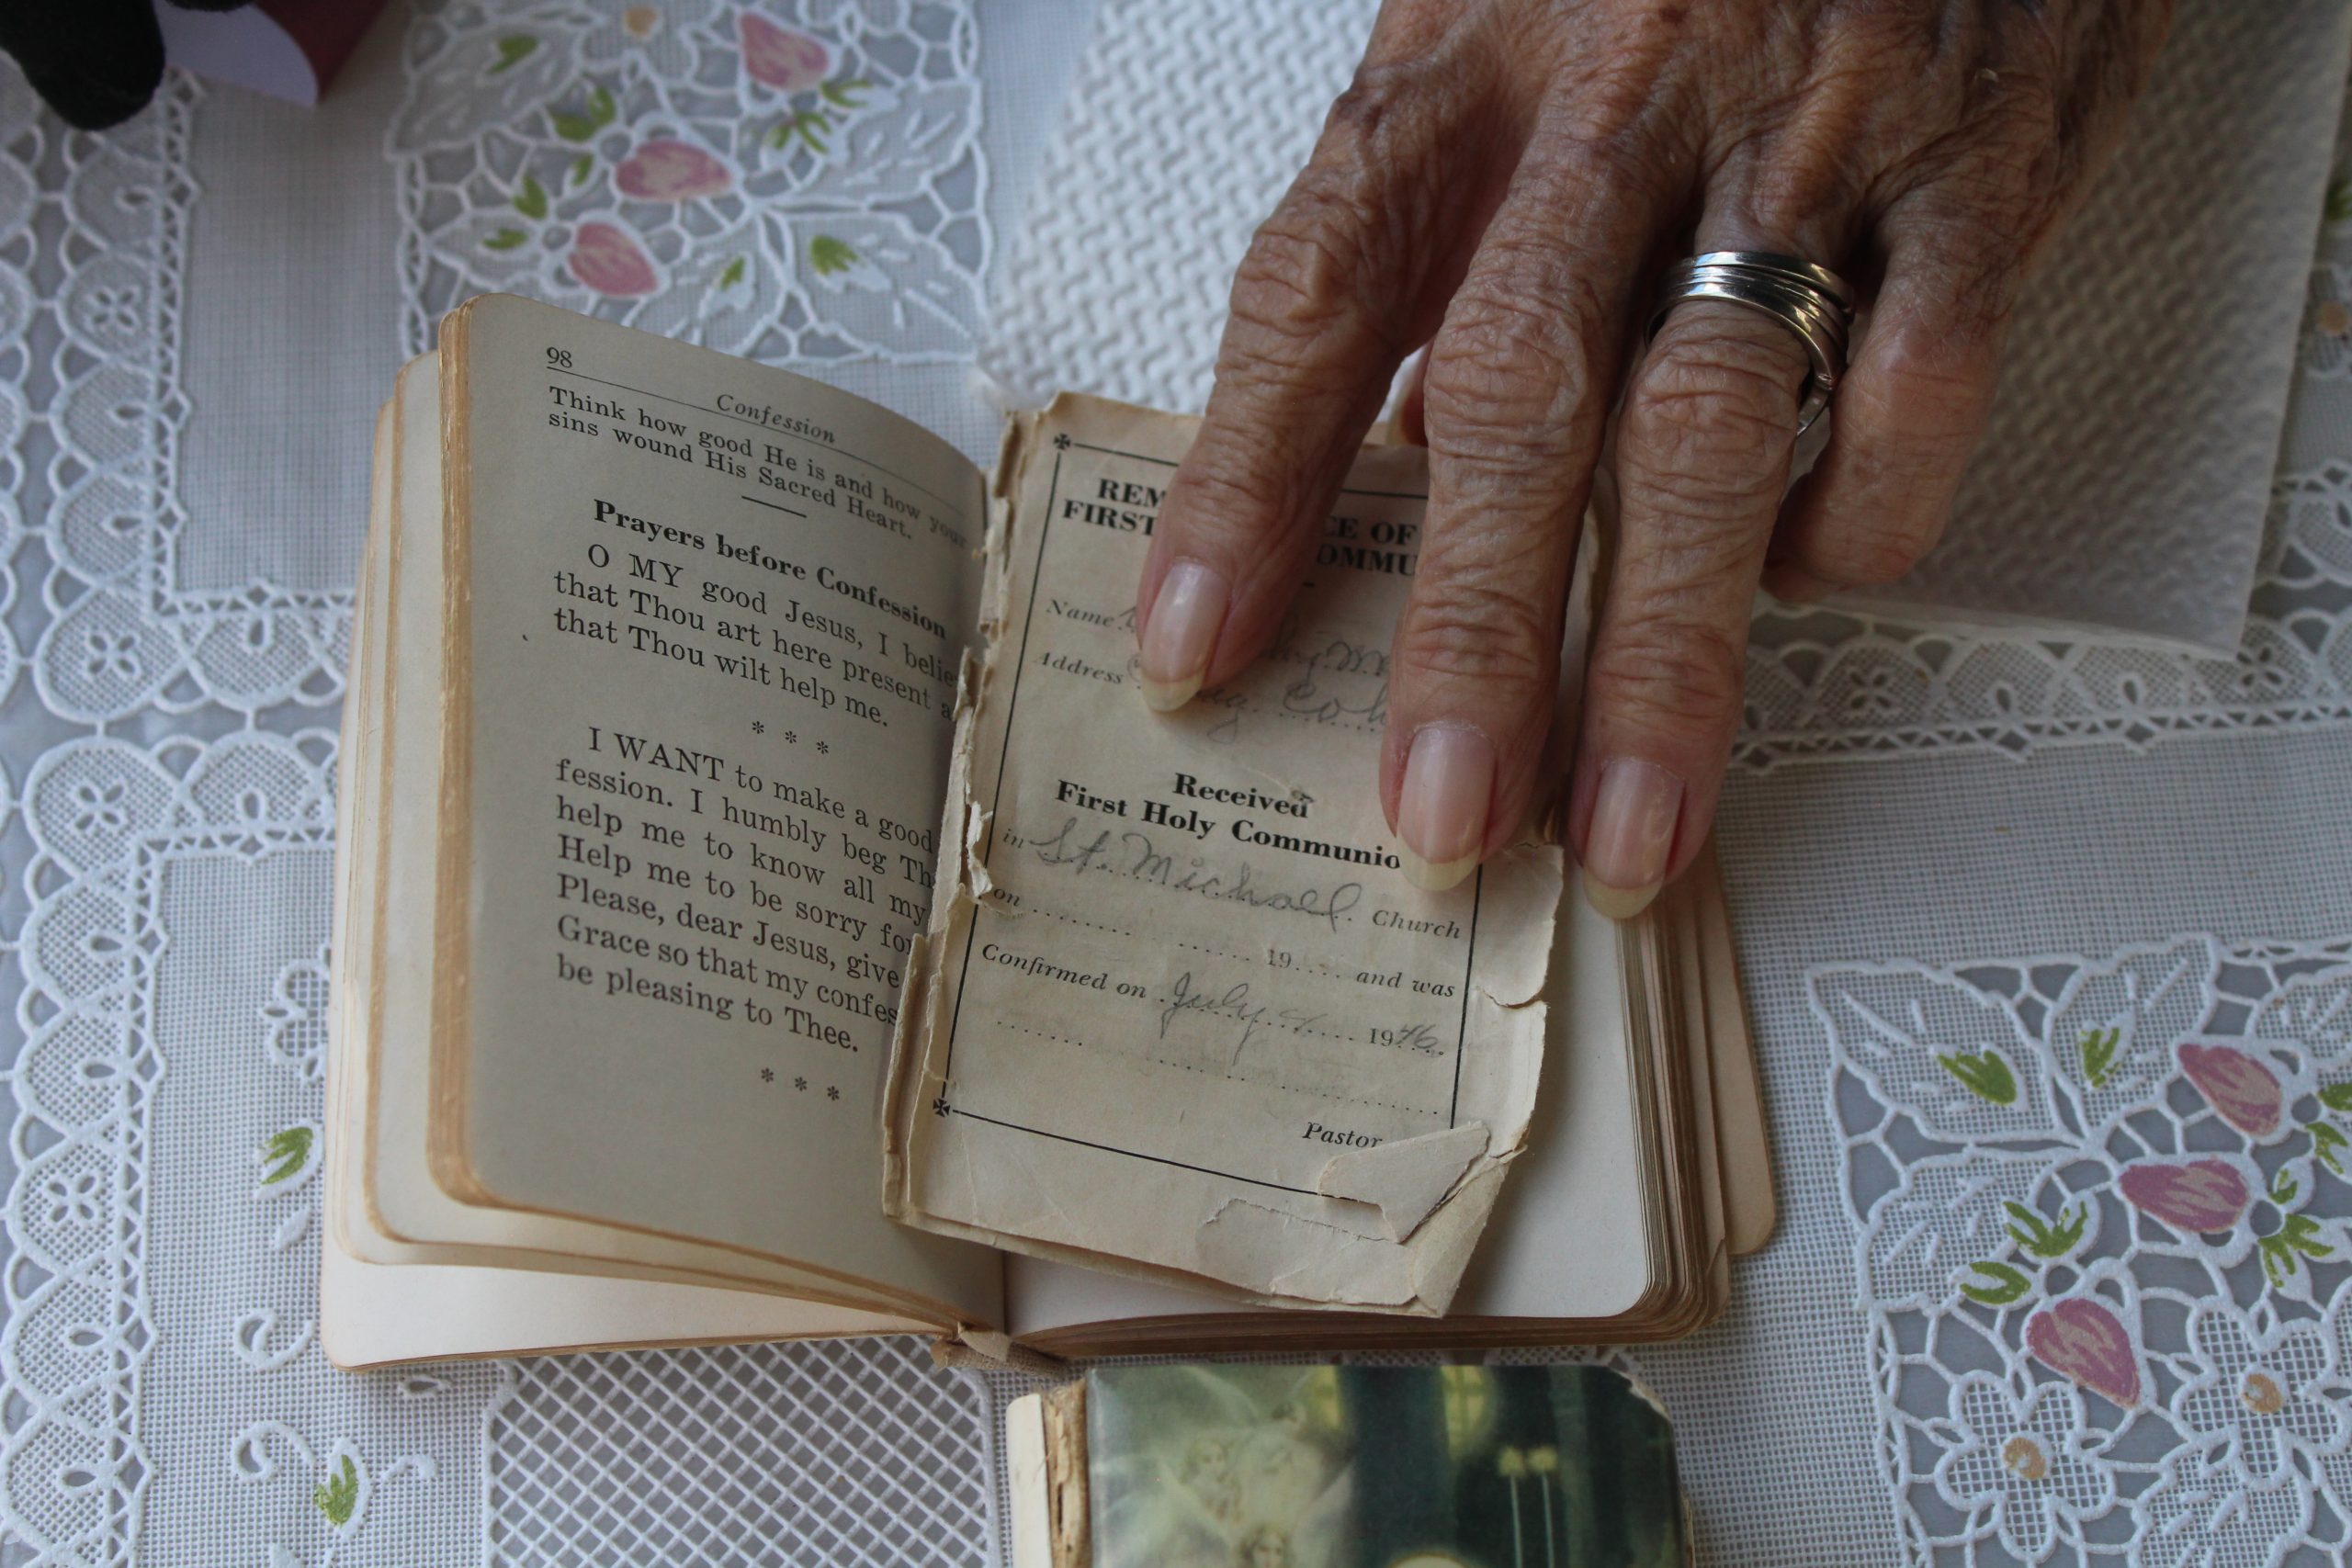 98
Confession
Think how good He is and how your
sins wound His Sacred Heart.
Prayers before Confession
O MY good Jesus, I belie
that Thou art here present a
that Thou wilt help me.
* * *
I WANT to make a good
fession. I humbly beg Th
help me to know all my
Help me to be sorry for
Please, dear Jesus, give
Grace so that my confes
be pleasing to Thee.
* * *
REM CE OF
FIRST OMMU
Name
Address
Received
First Holy Communio
in St. Michael Church
on 19 and was
Confirmed on July 4 1946.
Pastor